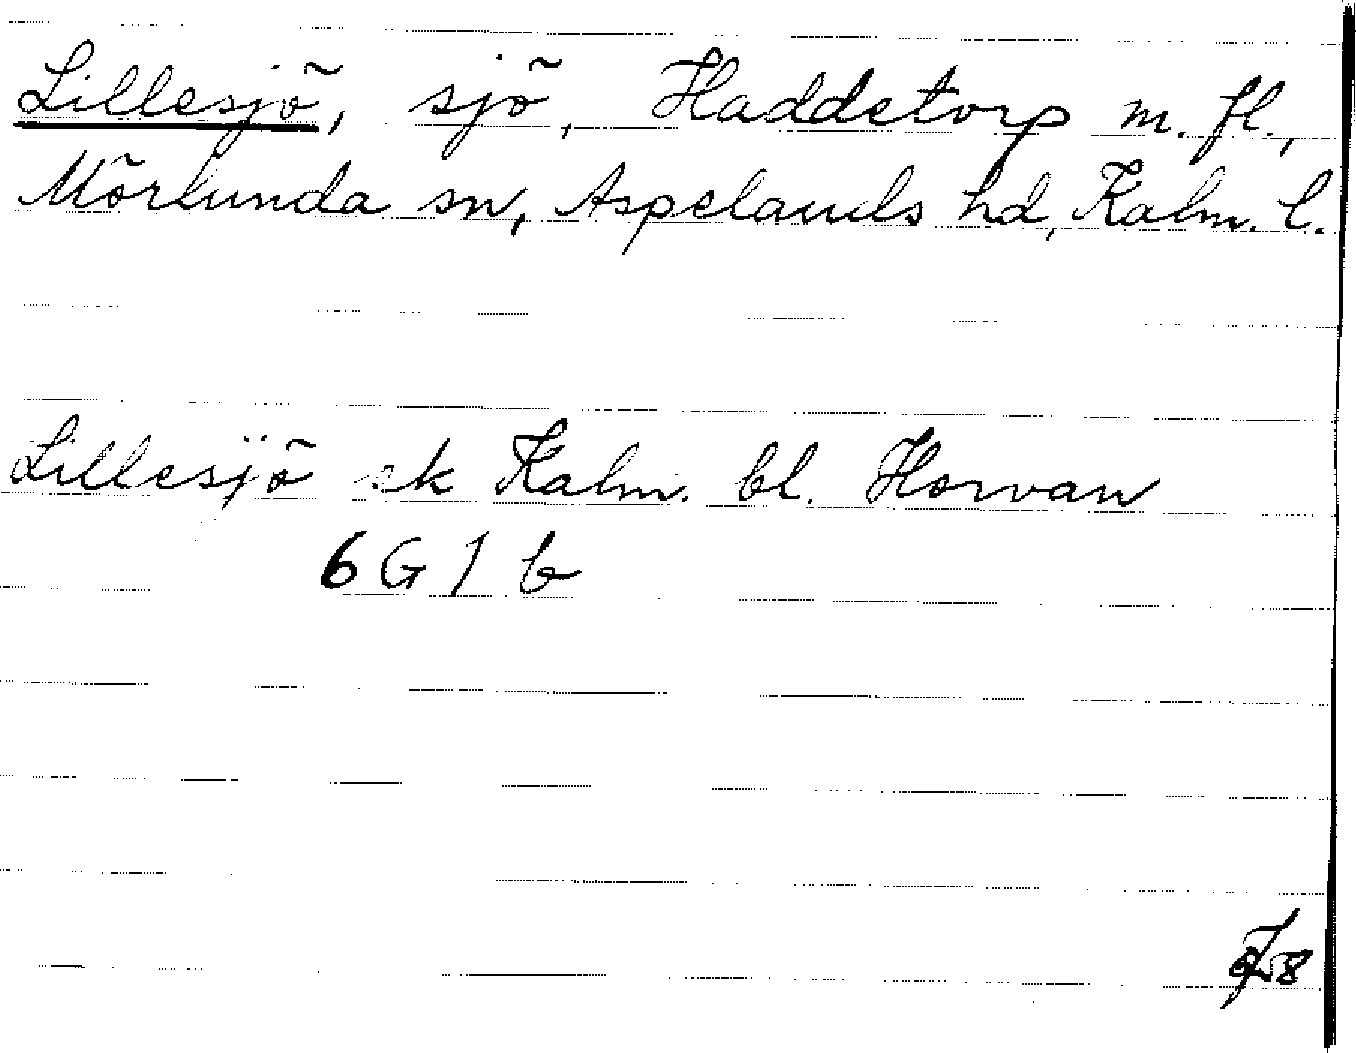 Lillesjö, sjö, Haddetorp m. fl.,
Mörlunda sn, Aspelands hd, Kalm. l.
Lillesjö ek Kalm. bl. Horvan
6 G 1 b